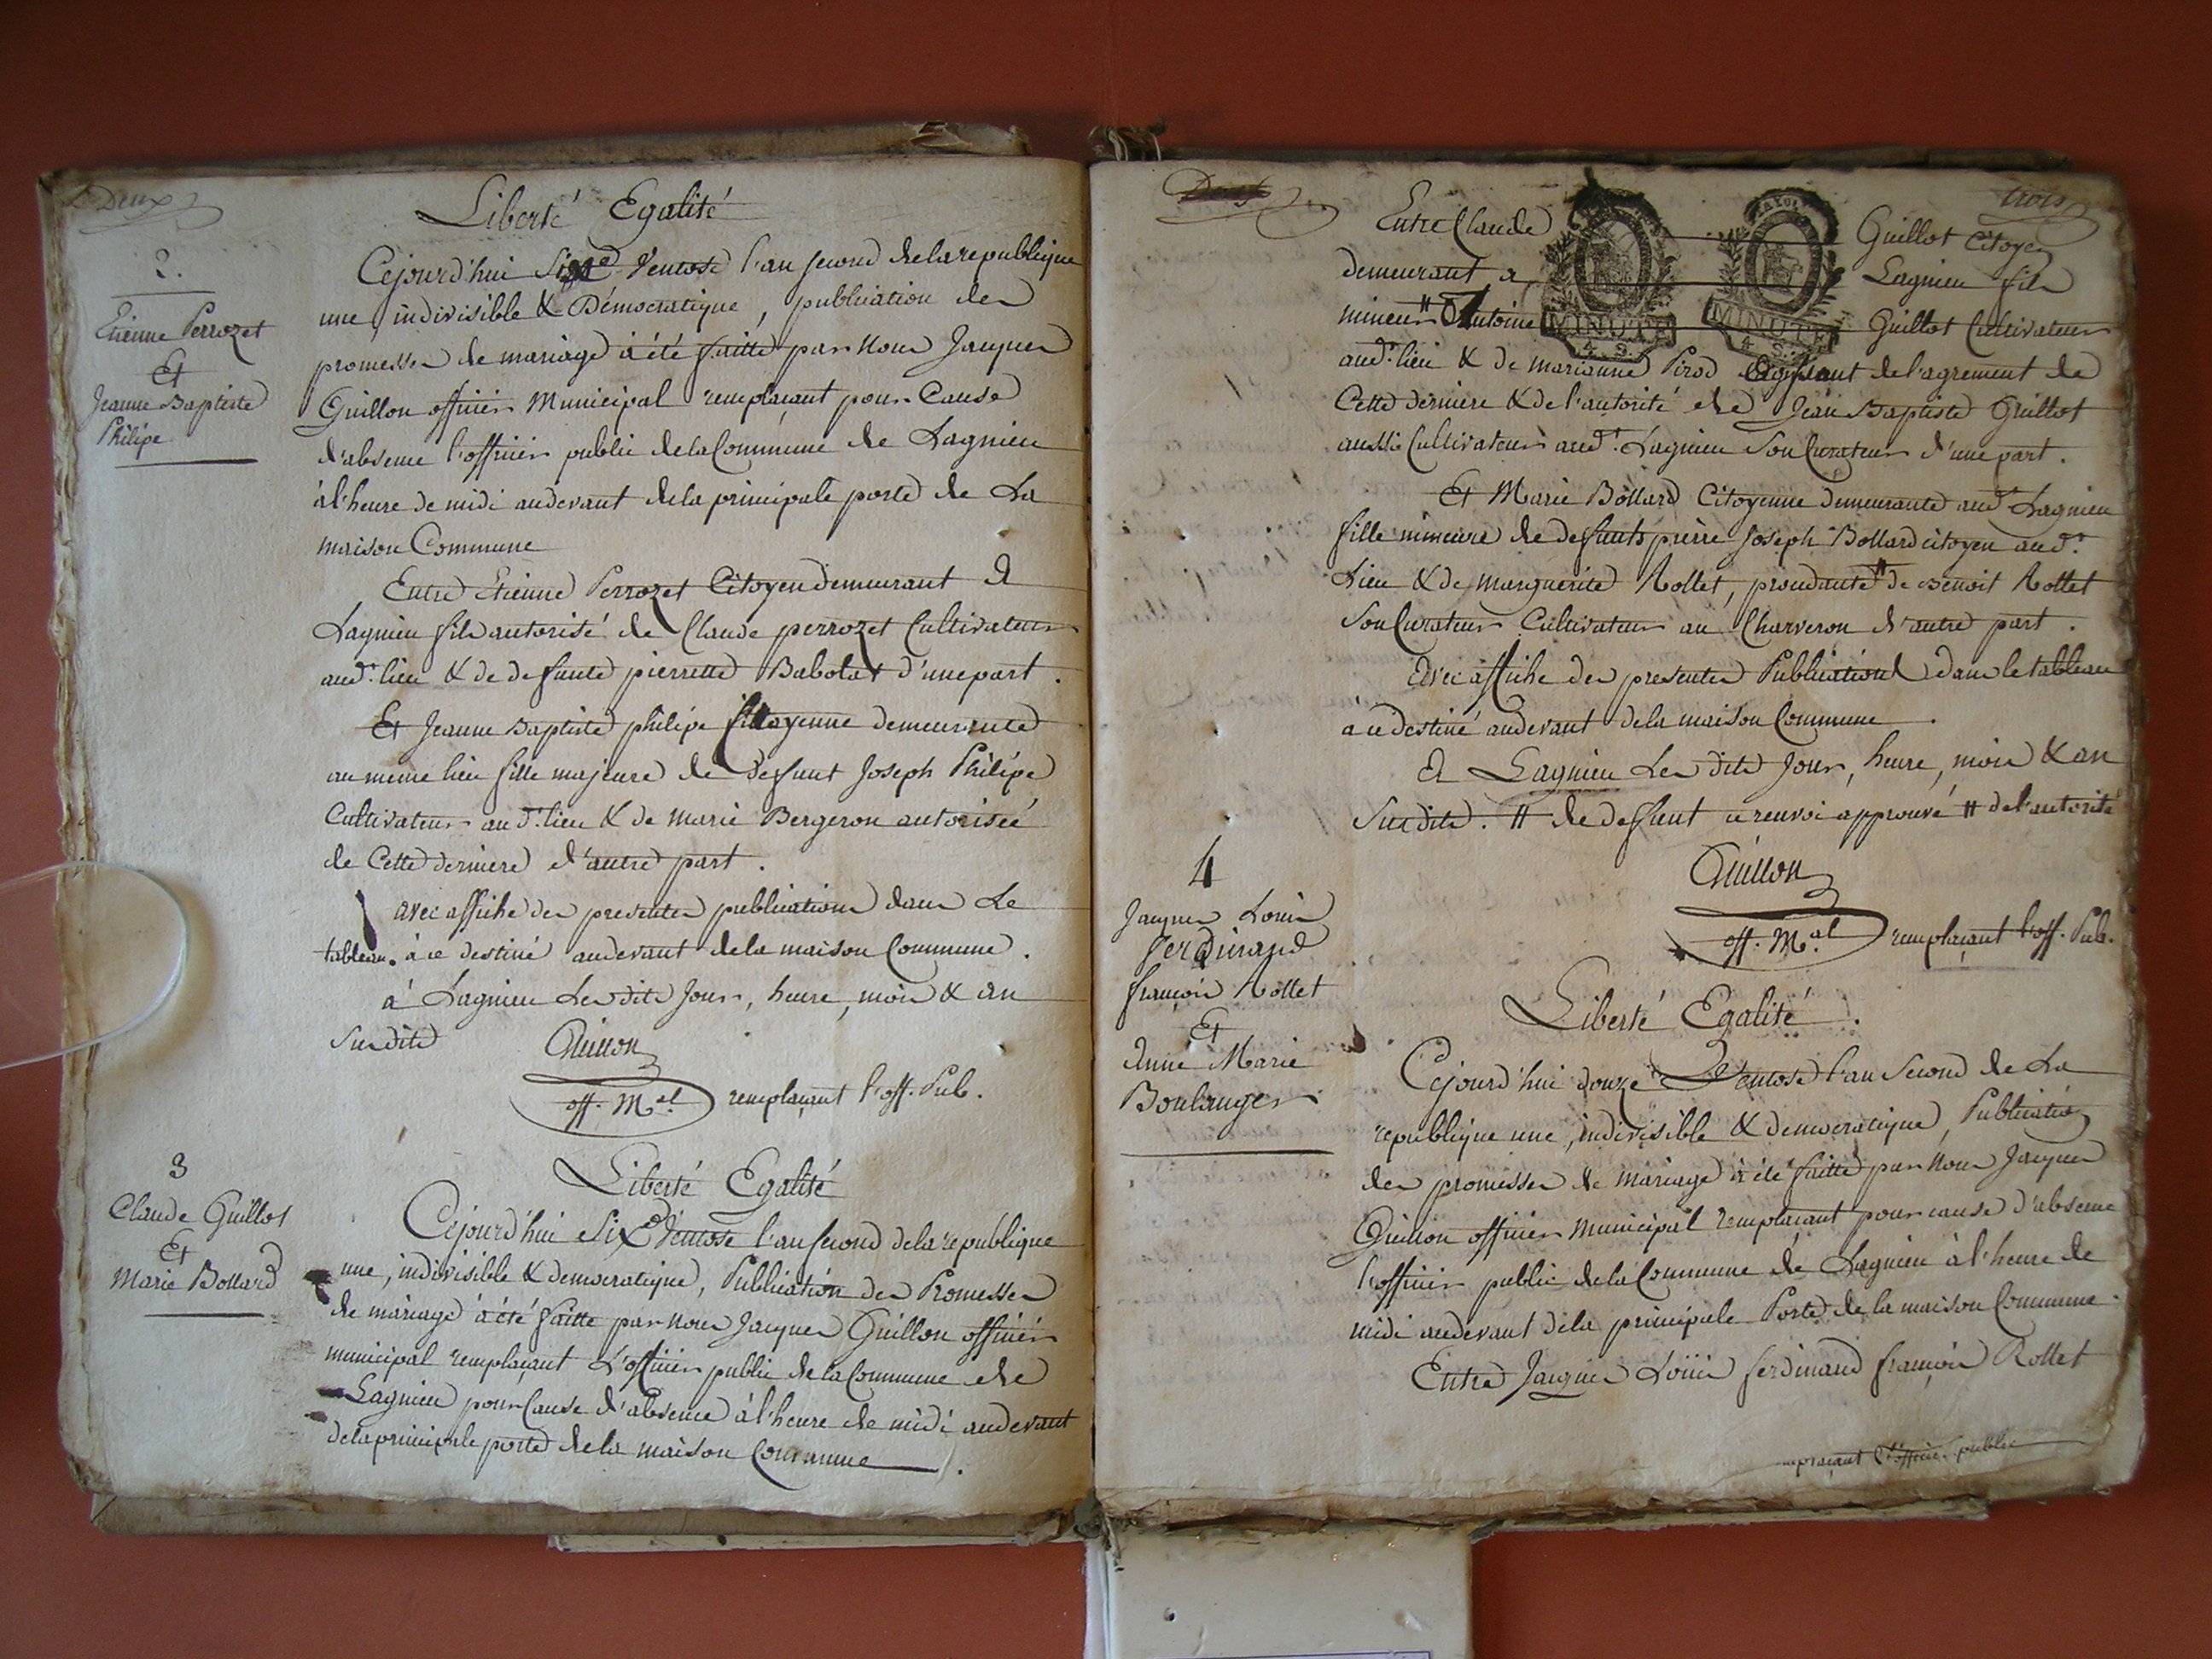 Deux
2.
Etienne Perrozet
Et
Jeanne Baptiste
Philipe
Liberté Egalité
Cejourd'hui Ventose l'an second de la republique
une, indivisible & Démocratique, publication des
promesses de mariage à été faitte par nous Jacques
Guillon officier Municipal remplaçant pour Cause
d'absence l'officier public de la Commune de Lagnieu
à l'heure de midi audevant de la principale porte de La
maison Commune
Entre Etienne Perrozet Citoyen demeurant A
Lagnieu fils autorisé de Claude perrozet Cultivateur
aud.t lieu & de defunte pierrette Babolat d'une part.
Et Jeanne Baptiste philipe Citoyenne demeurante
au meme lieu fille majeure de defunt Joseph Philipe
Cultivateur aud.t lieu & de marie Bergeron autorisée
de Cette derniere d'autre part.
avec affiche des presentes publications dans Le
tableau à ce destiné audevant de la maison Commune.
à Lagnieu Les dits Jour, heure, mois & an
Susdits
Guillon
off. M.al remplaçant l'off. Pub.
3
Claude Guillot
Et
Marie Bollard
Liberté Egalité
Cejourd'hui Six Ventose l'an second de la republique
une, indivisible & democratique, Publication des Promesses
de mariage à été faitte par nous Jacques Guillon officier
municipal remplaçant L'officier public de la Commune de
Lagnieu pour Cause d'absence à l'heure de midi audevant
de la principale porte de la maison Commune.
trois
Entre Claude Guillot Citoyen
demeurant a Lagnieu fils
mineur # d'Antoine Guillot Cultivateur
MINUTE MINUTE
4. S. 4. S.
aud.t lieu & de marianne Pirod agissant de l'agrement de
Cette derniere & de l'autorité de Jean Baptiste Guillot
aussi Cultivateur aud.t Lagnieu Son Curateur d'une part.
Et Marie Bollard Citoyenne demeurante aud.t Lagnieu
fille mineure de defunts pierre Joseph Bollard citoyen aud.t
Lieu & de marguerite Rollet, procedante # de Benoit Rollet
Son Curateur Cultivateur au Charveron d'autre part.
avec affiche des presentes Publications dans le tableau
à ce destiné audevant de la maison Commune.
A Lagnieu Les dits Jour, heure, mois & an
Susdits. # de defunt ce renvoi approuvé # de l'autorité
Guillon
off. M.al remplaçant l'off. Pub.
4
Jacques Louis
Ferdinand
françois Rollet
Et
Anne Marie
Boulanger
Liberté Egalité.
Cejourd'hui douze Ventose l'an Second de La
republique une, indivisible & democratique, Publication
des promesses de mariage à été faitte par nous Jacques
Guillon officier municipal remplaçant pour cause d'absence
l'officier public de la Commune de Lagnieu à l'heure de
midi audevant de la principale Porte de la maison Commune.
Entre Jacques Loüis ferdinand françois Rollet